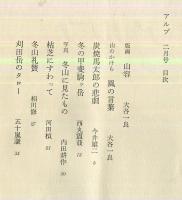 アルプ 二月号 目次
版画 山容 大谷一良
山のかけら 風の言葉 大谷一良
炭焼馬太郎の悲劇 今井雄二
冬の甲斐駒ヶ岳 西丸震哉
写真 冬山に見たもの 内田耕作
枯芝にすわって 河田楨
冬山礼讃 相川修
刈田岳のタロー 五十嵐譲